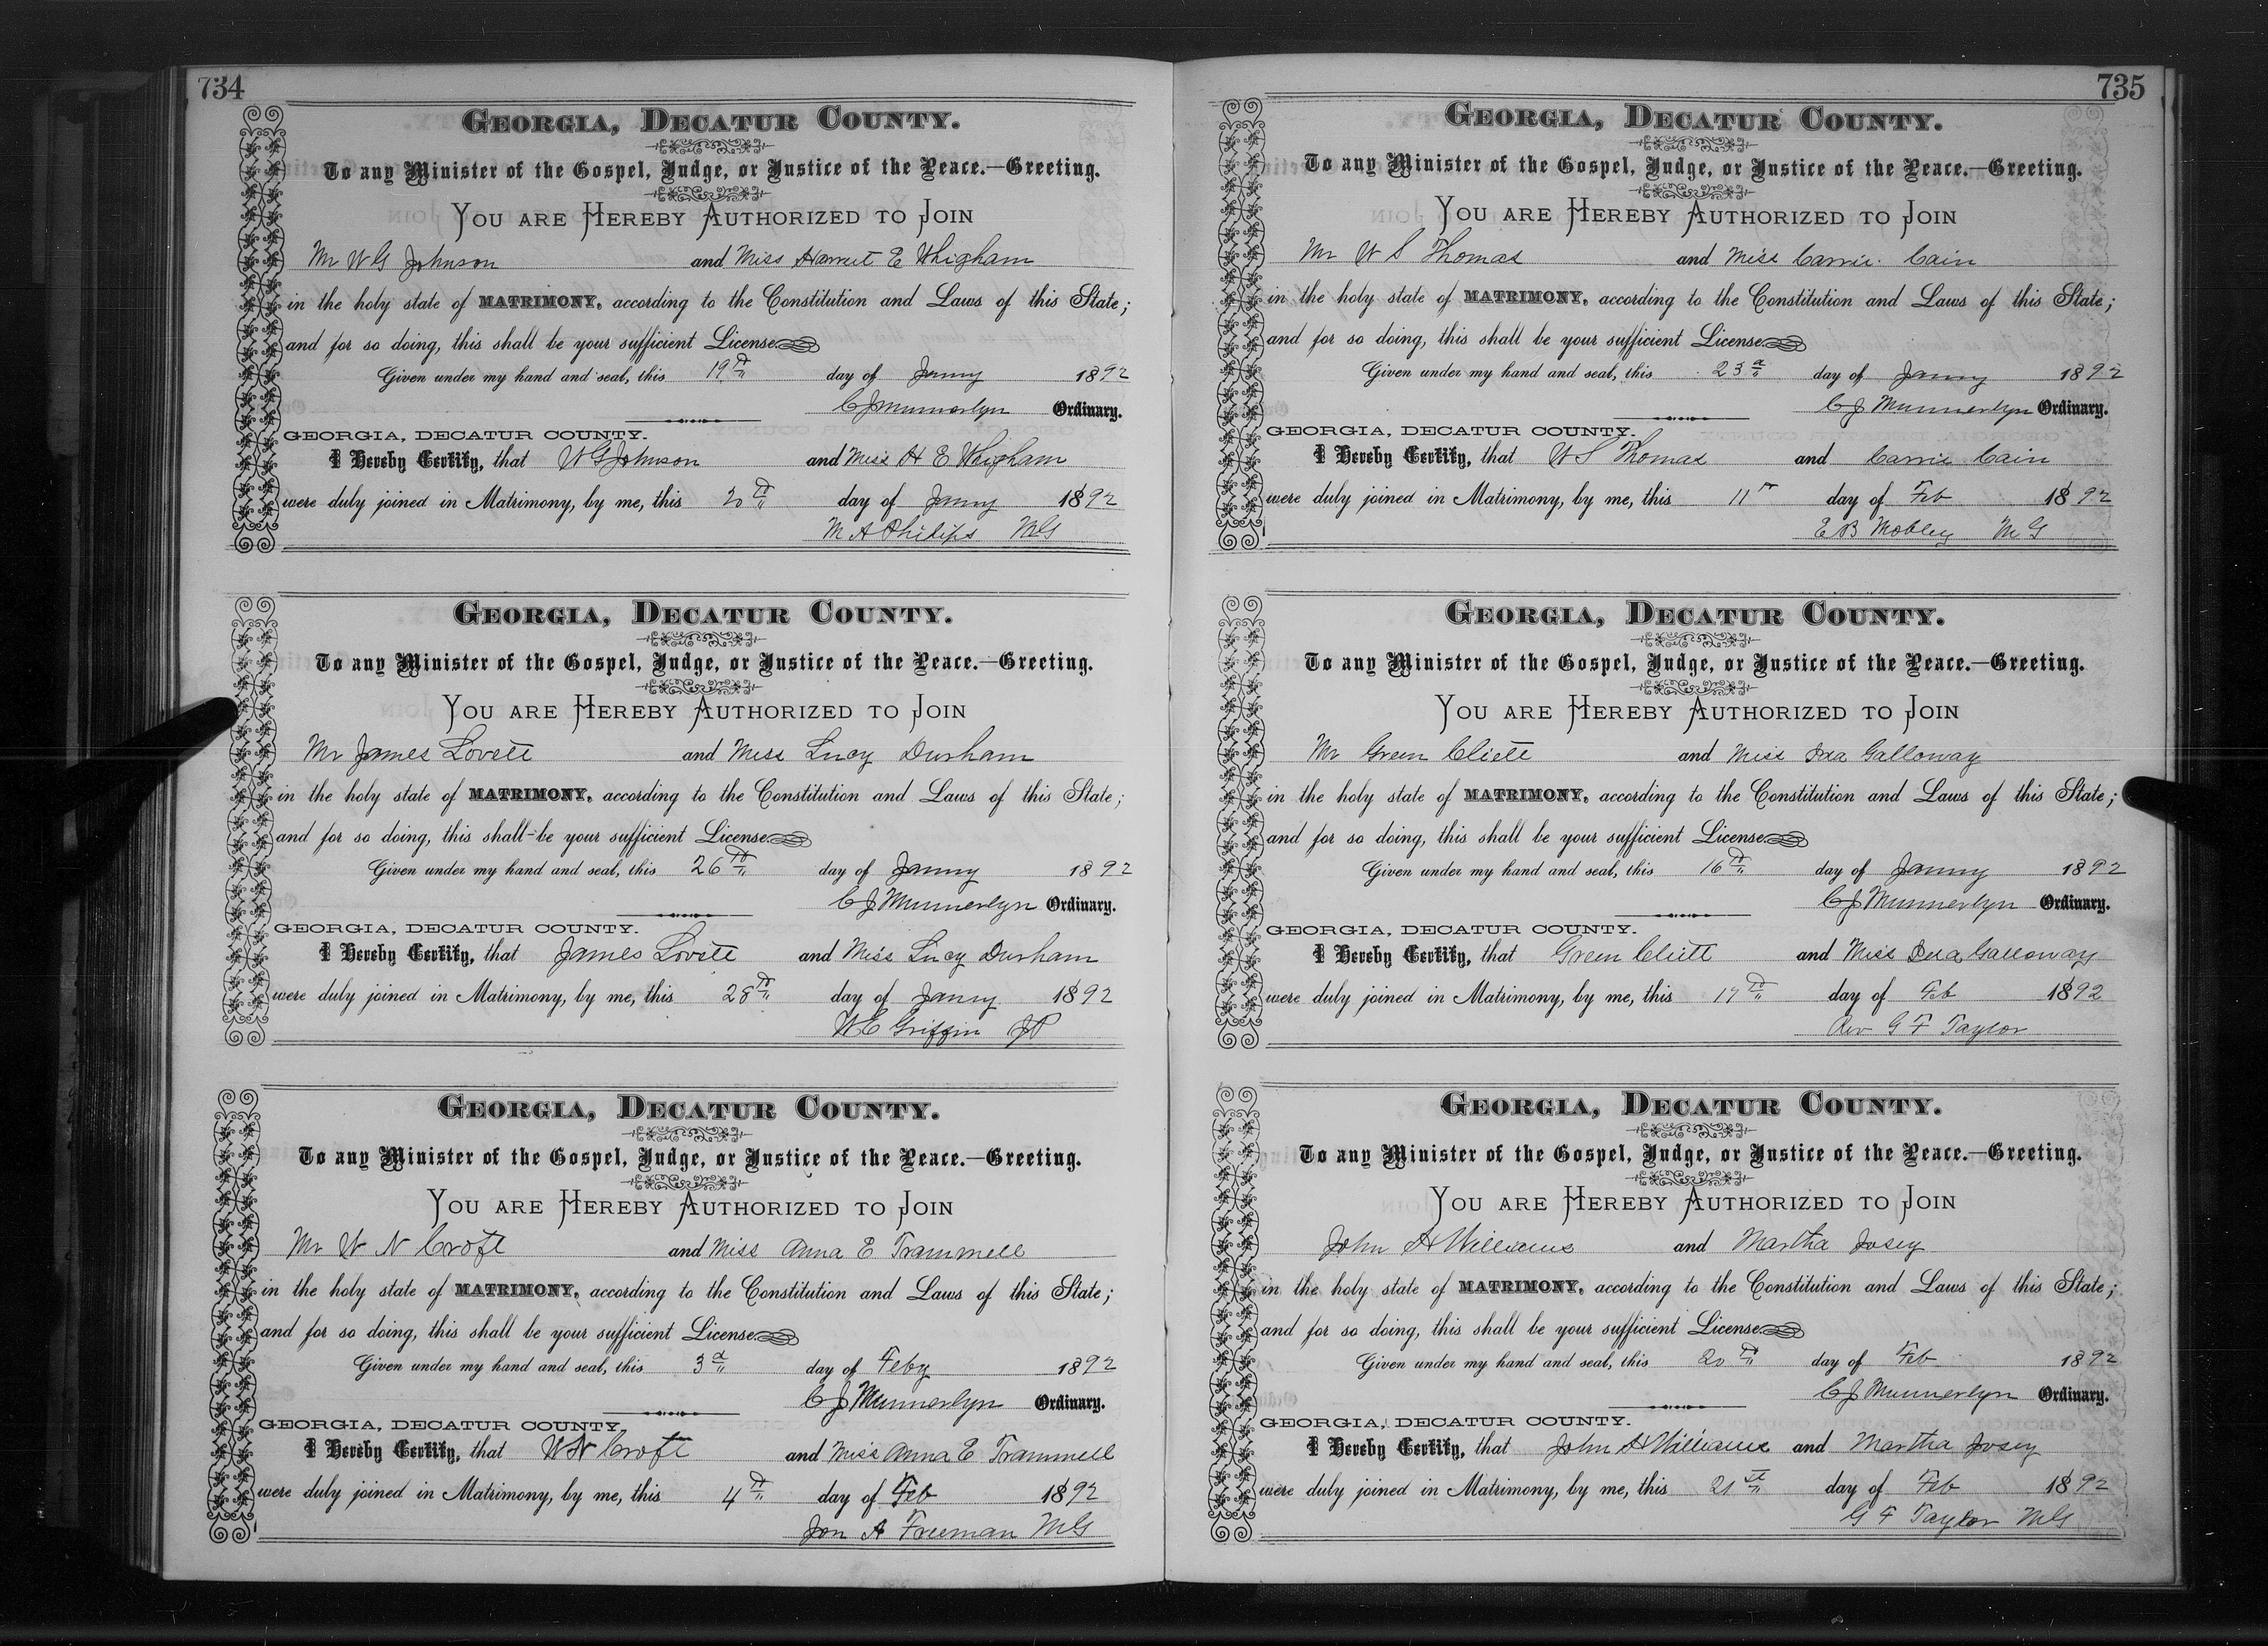 734
GEORGIA, DECATUR COUNTY.
To any Minister of the Gospel, Judge, or Justice of the Peace.—Greeting.
YOU ARE HEREBY AUTHORIZED TO JOIN
Mr W G Johnson and Miss Harriet E Whigham
in the holy state of MATRIMONY, according to the Constitution and Laws of this State;
and for so doing, this shall be your sufficient License.
Given under my hand and seal, this 19th day of Janny 1892
C J Munnerlyn Ordinary.
GEORGIA, DECATUR COUNTY.
I Hereby Certify, that W G Johnson and Miss H E Whigham
were duly joined in Matrimony, by me, this 20th day of Janny 1892
M A Philips MG
GEORGIA, DECATUR COUNTY.
To any Minister of the Gospel, Judge, or Justice of the Peace.—Greeting.
YOU ARE HEREBY AUTHORIZED TO JOIN
Mr James Lovett and Miss Lucy Durham
in the holy state of MATRIMONY, according to the Constitution and Laws of this State;
and for so doing, this shall be your sufficient License.
Given under my hand and seal, this 26th day of Janny 1892
C J Munnerlyn Ordinary.
GEORGIA, DECATUR COUNTY.
I Hereby Certify, that James Lovett and Miss Lucy Durham
were duly joined in Matrimony, by me, this 28th day of Janny 1892
W E Griffin JP
GEORGIA, DECATUR COUNTY.
To any Minister of the Gospel, Judge, or Justice of the Peace.—Greeting.
YOU ARE HEREBY AUTHORIZED TO JOIN
Mr W N Croft and Miss Anna E Trammell
in the holy state of MATRIMONY, according to the Constitution and Laws of this State;
and for so doing, this shall be your sufficient License.
Given under my hand and seal, this 3d day of Feby 1892
C J Munnerlyn Ordinary.
GEORGIA, DECATUR COUNTY.
I Hereby Certify, that W N Croft and Miss Anna E Trammell
were duly joined in Matrimony, by me, this 4th day of Feb 1892
Jon A Foreman MG
735
GEORGIA, DECATUR COUNTY.
To any Minister of the Gospel, Judge, or Justice of the Peace.—Greeting.
YOU ARE HEREBY AUTHORIZED TO JOIN
Mr W S Thomas and Miss Carrie Cain
in the holy state of MATRIMONY, according to the Constitution and Laws of this State;
and for so doing, this shall be your sufficient License.
Given under my hand and seal, this 23d day of Janny 1892
C J Munnerlyn Ordinary.
GEORGIA, DECATUR COUNTY.
I Hereby Certify, that W S Thomas and Carrie Cain
were duly joined in Matrimony, by me, this 11 day of Feb 1892
E B Mobley MG
GEORGIA, DECATUR COUNTY.
To any Minister of the Gospel, Judge, or Justice of the Peace.—Greeting.
YOU ARE HEREBY AUTHORIZED TO JOIN
Mr Green Cliett and Miss Galloway
in the holy state of MATRIMONY, according to the Constitution and Laws of this State;
and for so doing, this shall be your sufficient License.
Given under my hand and seal, this 16th day of Janny 1892
C J Munnerlyn Ordinary.
GEORGIA, DECATUR COUNTY.
I Hereby Certify, that Green Cliett and Miss Galloway
were duly joined in Matrimony, by me, this 17th day of Feb 1892
Rev G F Taylor
GEORGIA, DECATUR COUNTY.
To any Minister of the Gospel, Judge, or Justice of the Peace.—Greeting.
YOU ARE HEREBY AUTHORIZED TO JOIN
John H Williams and Martha Josey
in the holy state of MATRIMONY, according to the Constitution and Laws of this State;
and for so doing, this shall be your sufficient License.
Given under my hand and seal, this 20th day of Feb 1892
C J Munnerlyn Ordinary.
GEORGIA, DECATUR COUNTY.
I Hereby Certify, that John H Williams and Martha Josey
were duly joined in Matrimony, by me, this 21st day of Feb 1892
G F Taylor MG